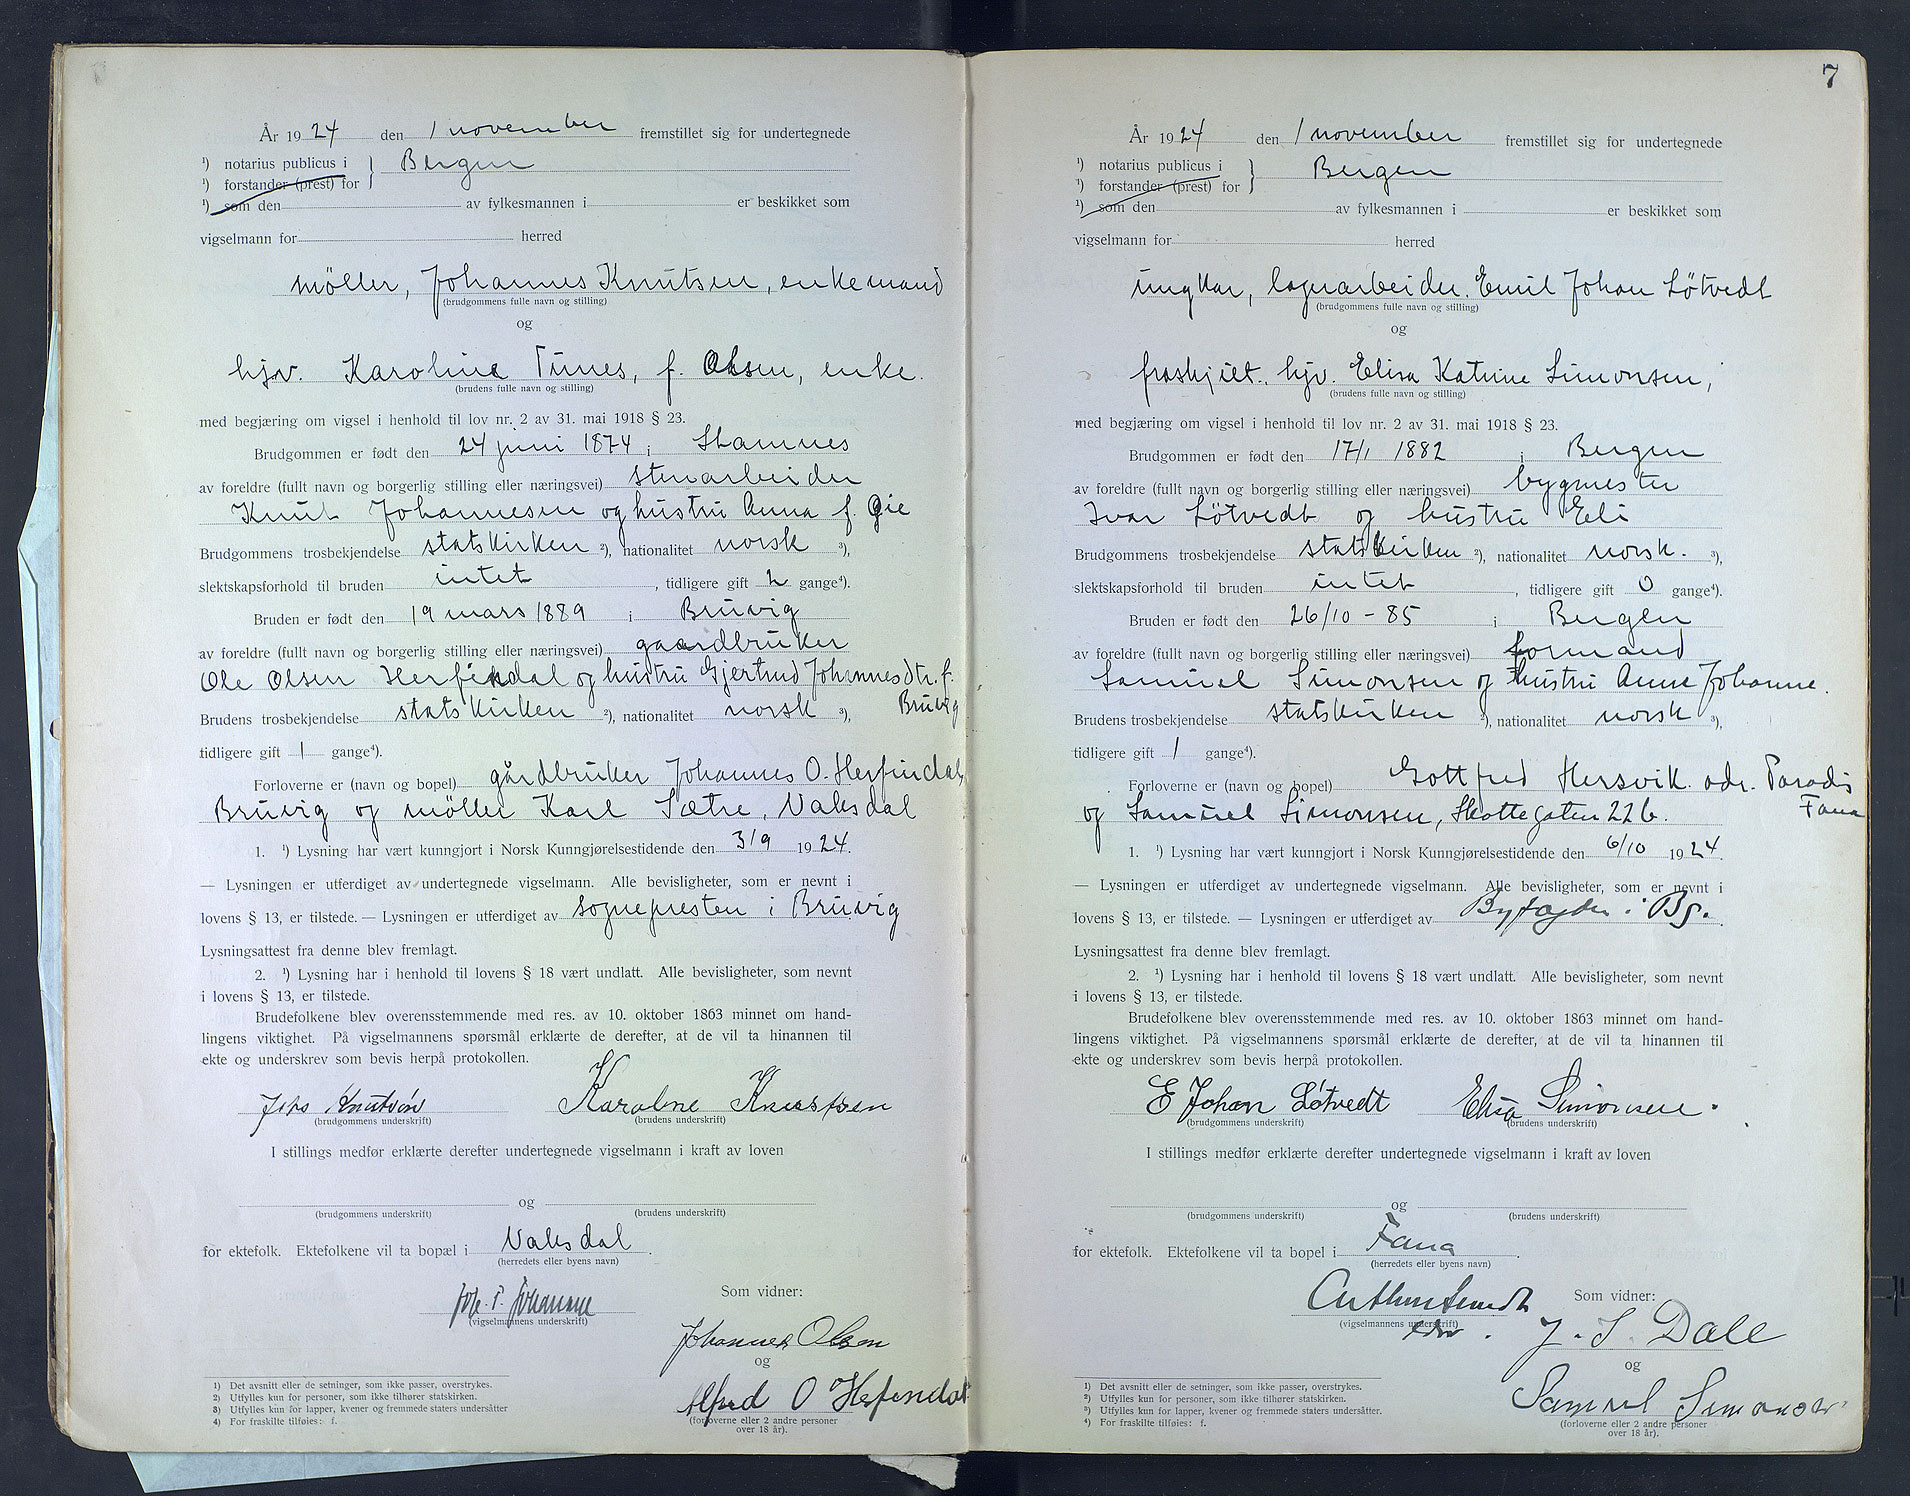 År 1924 den 1 november fremstillet sig for undertegnede
¹) notarius publicus i } Bergen
¹) forstander (prest) for
¹) som den av fylkesmannen i er beskikket som
vigselmann for herred
møller, Johannes Knutsen, enkemand
(brudgommens fulle navn og stilling)
og
hjv. Karoline Tunes, f. Olsen, enke.
(brudens fulle navn og stilling)
med begjæring om vigsel i henhold til lov nr. 2 av 31. mai 1918 § 23.
Brudgommen er født den 24 juni 1874 i Stamnes
av foreldre (fullt navn og borgerlig stilling eller næringsvei) stenarbeider
Knut Johannesen og hustru Anna f. Øie
Brudgommens trosbekjendelse statskirken ²), nationalitet norsk ³),
slektskapsforhold til bruden intet, tidligere gift 2 gange⁴).
Bruden er født den 19 mars 1889 i Bruvig
av foreldre (fullt navn og borgerlig stilling eller næringsvei) gaardbruker
Ole Olsen Herfindal og hustru Gjertrud Johannesdtr. f.
Brudens trosbekjendelse statskirken ²), nationalitet norsk ³), Bruvig
tidligere gift 1 gange⁴).
Forloverne er (navn og bopel) gårdbruker Johannes O. Herfindal,
Bruvig og møller Karl Sætre, Vaksdal
1. ¹) Lysning har vært kunngjort i Norsk Kunngjørelsestidende den 3/9 1924.
— Lysningen er utferdiget av undertegnede vigselmann. Alle bevisligheter, som er nevnt i
lovens § 13, er tilstede. — Lysningen er utferdiget av sognepresten i Bruvig
Lysningsattest fra denne blev fremlagt.
2. ¹) Lysning har i henhold til lovens § 18 vært undlatt. Alle bevisligheter, som nevnt
i lovens § 13, er tilstede.
Brudefolkene blev overensstemmende med res. av 10. oktober 1863 minnet om hand-
lingens viktighet. På vigselmannens spørsmål erklærte de derefter, at de vil ta hinannen til
ekte og underskrev som bevis herpå protokollen.
Johs Knutsøn Karoline Knutsen
(brudgommens underskrift) (brudens underskrift)
I stillings medfør erklærte derefter undertegnede vigselmann i kraft av loven
og
(brudgommens underskrift) (brudens underskrift)
for ektefolk. Ektefolkene vil ta bopæl i Vaksdal.
(herredets eller byens navn)
Som vidner:
(vigselmannens underskrift)
Johannes Olsen
og
Alfred O Herfindal
(forloverne eller 2 andre personer
over 18 år).
1) Det avsnitt eller de setninger, som ikke passer, overstrykes.
2) Utfylles kun for personer, som ikke tilhører statskirken.
3) Utfylles kun for lapper, kvener og fremmede staters undersåtter
4) For fraskilte tilføies: f.
7
År 1924 den 1 november fremstillet sig for undertegnede
¹) notarius publicus i } Bergen
¹) forstander (prest) for
¹) som den av fylkesmannen i er beskikket som
vigselmann for herred
ungkar, lagerarbeider. Emil Johan Løtvedt
(brudgommens fulle navn og stilling)
og
fraskjilt. hjv. Elisa Katrine Simonsen,
(brudens fulle navn og stilling)
med begjæring om vigsel i henhold til lov nr. 2 av 31. mai 1918 § 23.
Brudgommen er født den 17/1 1882 i Bergen
av foreldre (fullt navn og borgerlig stilling eller næringsvei) bygmester
Ivar Løtvedt og hustru Eli
Brudgommens trosbekjendelse statskirken ²), nationalitet norsk. ³),
slektskapsforhold til bruden intet, tidligere gift 0 gange⁴).
Bruden er født den 26/10 - 85 i Bergen
av foreldre (fullt navn og borgerlig stilling eller næringsvei) formand
Samuel Simonsen og hustru Anne Johanne.
Brudens trosbekjendelse statskirken ²), nationalitet norsk ³),
tidligere gift 1 gange⁴).
Forloverne er (navn og bopel) Gottfred Hersvik. adr. Paradis
Fana
og Samuel Simonsen, Skottegaten 22b.
1. ¹) Lysning har vært kunngjort i Norsk Kunngjørelsestidende den 6/10 1924.
— Lysningen er utferdiget av undertegnede vigselmann. Alle bevisligheter, som er nevnt i
lovens § 13, er tilstede. — Lysningen er utferdiget av Byfogden i Bg.
Lysningsattest fra denne blev fremlagt.
2. ¹) Lysning har i henhold til lovens § 18 vært undlatt. Alle bevisligheter, som nevnt
i lovens § 13, er tilstede.
Brudefolkene blev overensstemmende med res. av 10. oktober 1863 minnet om hand-
lingens viktighet. På vigselmannens spørsmål erklærte de derefter, at de vil ta hinannen til
ekte og underskrev som bevis herpå protokollen.
E Johan Løtvedt Elisa Simonsen.
(brudgommens underskrift) (brudens underskrift)
I stillings medfør erklærte derefter undertegnede vigselmann i kraft av loven
og
(brudgommens underskrift) (brudens underskrift)
for ektefolk. Ektefolkene vil ta bopel i Fana.
(herredets eller byens navn)
Som vidner:
(vigselmannens underskrift)
J. S. Dale
og
Samuel Simonsen
(forloverne eller 2 andre personer
over 18 år).
1) Det avsnitt eller de setninger, som ikke passer, overstrykes.
2) Utfylles kun for personer, som ikke tilhører statskirken.
3) Utfylles kun for lapper, kvener og fremmede staters undersåtter.
4) For fraskilte tilføies: f.